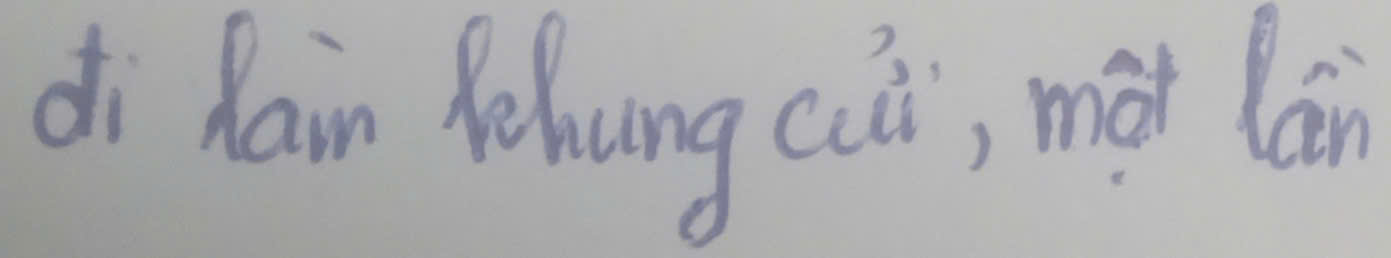 đi làm khung cửi, một lần